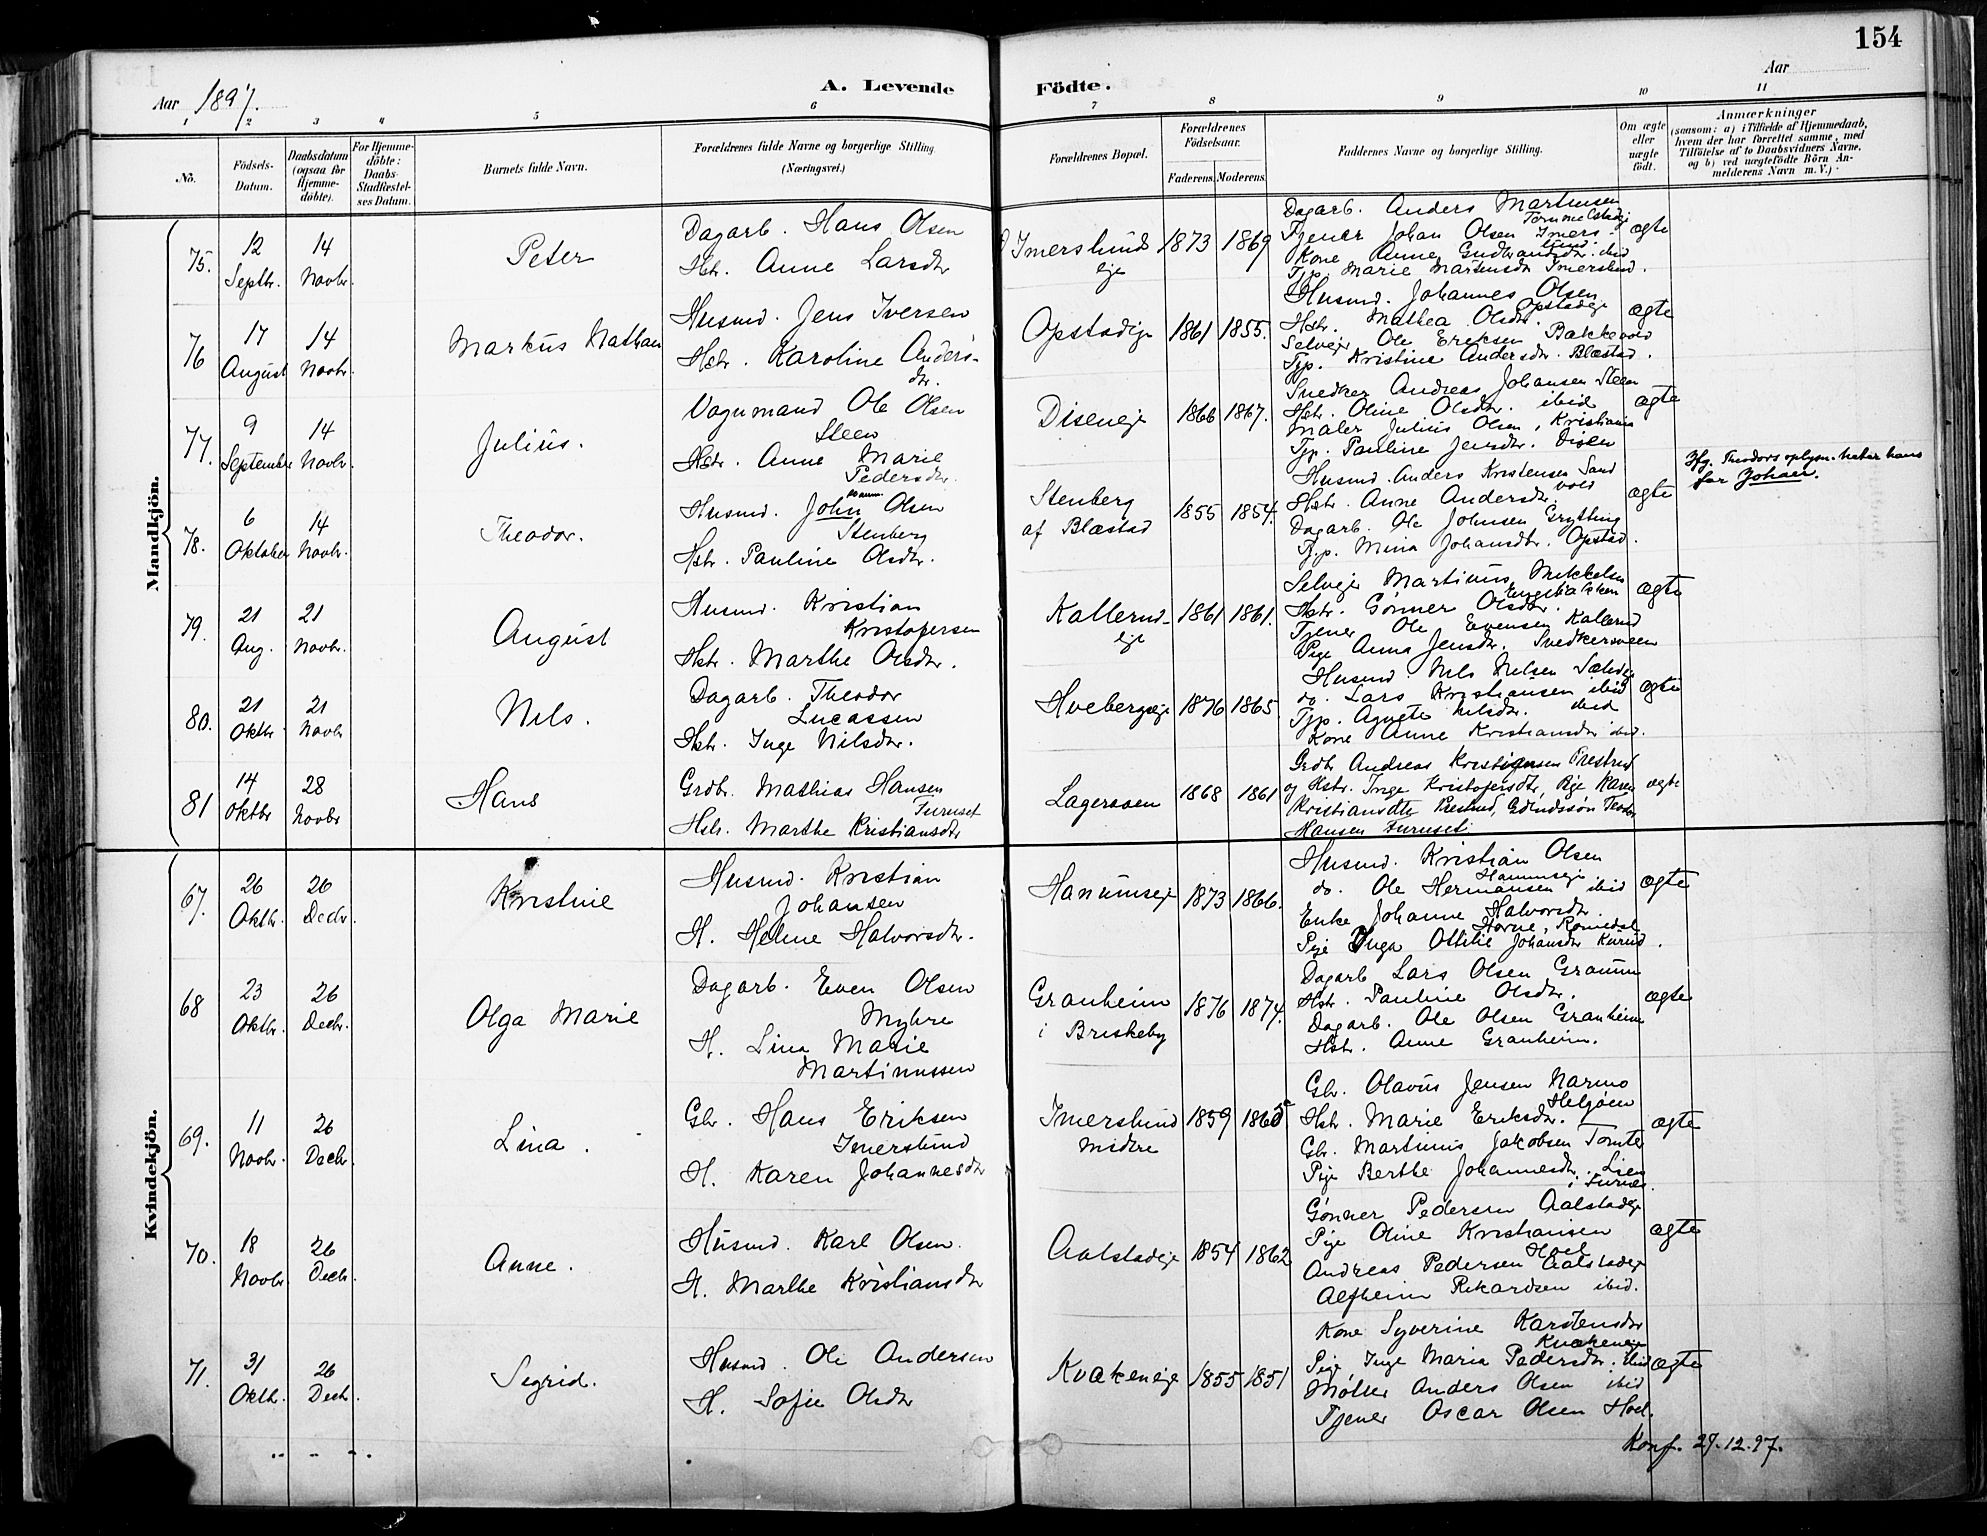 154
Aar 1897.
A. Levende Födte.
Aar
1 2 3 4 5 6 7 8 9 10 11
No.
Födsels-Datum.
Daabsdatum (ogsaa for Hjemmedöbte).
For Hjemmedöbte: Daabs-Stadfæstelses Datum.
Barnets fulde Navn.
Forældrenes fulde Navne og borgerlige Stilling
(Næringsvei.)
Forældrenes Bopæl.
Forældrenes Födselsaar.
Faderens. Moderens.
Faddernes Navne og borgerlige Stilling.
Om ægte eller uægte födt.
Anmærkninger
(saasom: a) i Tilfælde af Hjemmedaab, hvem der har forrettet samme, med Tilföielse af to Daabsvidners Navne, og b) ved uægtefödte Börn Anmelderens Navn m. V.)
Mandkjön.
75. 12 Septbr. 14 Novbr. Peter
Dagarb. Hans Olsen
Hstr. Anne Larsdtr
Imerslundeje 1873 1869
Dagarb. Anders Martinsen Tommelstadeje
Tjener Johan Olsen Imerslund.
Kone Anne Gudbrandsdtr. ibid
Tjp. Marie Martensdtr Imerslund.
ægte
76 17 August 14 Novbr. Markus Nathan
Husmd. Jens Iversen
Hstr. Karoline Andersdtr.
Opstadeje 1861 1855.
Husmd. Johannes Olsen Opstadeje
Hstr. Mathea Olsdtr.
Selvejer Ole Eriksen Bakkevold
Tjp. Kristine Andersdtr. Blæstad.
ægte
77. 9 September 14 Novbr. Julius.
Vognmand Ole Olsen Steen
Hstr. Anne Marie Pedersdtr.
Diseneje 1866 1867.
Snedker Andreas Johansen Steen
Hstr. Oline Olsdtr. ibid
Maler Julius Olsen, Kristiania
Tjp. Pauline Jensdtr. Disen
ægte
78. 6 Oktober 14 Novbr. Theodor.
Husmd. John Olsen Stenberg
Hstr. Pauline Olsdtr.
Stenberg af Blæstad 1855 1854.
Husmd. Anders Kristensen Sandvold
Hstr. Anne Andersdtr.
Dagarb. Ole Johnsen Grytting
Tjp. Mina Johansdtr. Opstad.
ægte
Ifg. Theodors oplysn. heter hans far Johan.
79. 21 Aug. 21 Novbr. August
Husmd. Kristian Kristofersen
Hstr. Marthe Olsdtr.
Kallerudeje 1861 1861.
Selvejer Martinus Mikkelsen
Hstr. Gønner Olsdtr.
Tjener Ole Evensen Kallerud
Pige Anna Jensdtr. Snedkersveen
ægte
80. 21 Oktbr. 21 Novbr Nils.
Dagarb. Theodor Lucassen
Hstr. Inge Nilsdtr.
Hvebergseje 1876 1865.
Husmd. Nils Nilsen
do. Lars Kristiansen ibid
Tjp. Agnete Nilsdtr. ibid
Kone Anne Kristiansdtr ibid.
ægte
81 14 Oktbr 28 Novbr Hans
Grdbr. Mathias Hansen Furuset
Hstr. Marthe Kristiansdtr
Lagersveen 1868 1861
Grdbr Andreas Kristiansen Prestrud
og Hstr. Inge Kristofersdtr, Pige Karen
Kristiansdtr Prestrud, Grdmdssøn
Hansen Furuset.
ægte
Kvindekjön.
67. 26 Oktbr. 26 Decbr. Kristine
Husmd. Kristian Johansen
H. Helene Halvorsdtr.
Hanumseje 1873 1866.
Husmd. Kristian Olsen Hanumseje
do. Ole Hermansen ibid
Enke Johanne Halvorsdtr. Horne, Romedal
Pige Inga Ottilie Johansdtr Kurud.
ægte
68 23 Oktbr. 26 Decbr. Olga Marie
Dagarb. Even Olsen Myhre
H. Lina Marie Martinussen
Granheim i Briskeby 1876 1874.
Dagarb Lars Olsen Granum
Hstr. Pauline Olsdtr.
Dagarb. Ole Olsen Granheim
Hstr. Anne Granheim.
ægte
69. 11 Novbr. 26 Decbr. Lina.
Gbr. Hans Eriksen Imerslund
H. Karen Johannesdtr
Imerslund midtre 1859
Gbr. Olavus Jensen Narmo Helgøen
Hstr. Marie Eriksdtr.
Gbr. Martinus Jakobsen Tomter
Pige Berthe Johannesdtr. Lien i Furnes.
ægte
70. 18 Novbr. 26 Decbr. Anne.
Husmd. Karl Olsen.
H. Marthe Kristiansdtr
Aalstadeje 1854 1862
Gønner Pedersen Aalstadeje
Pige Oline Kristiansen Hoel
Andreas Pedersen Aalstadeje
Alfheim Rikardsen ibid.
ægte
71. 31 Oktbr. 26 Decbr. Segrid.
Husmd. Ole Andersen
H. Sofie Olsdtr
Kvækeneje 1855 1851
Kone Syverine Karstensdtr Kvækeneje
Pige Inge Maria Pedersdtr. ibid
Møller Anders Olsen ibid
Tjener Oscar Olsen Hoel.
ægte
Konf. 29.12.97.